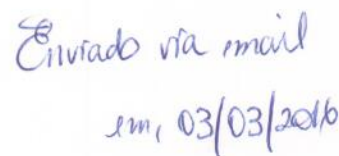 Enviado via email
em, 03/03/2016